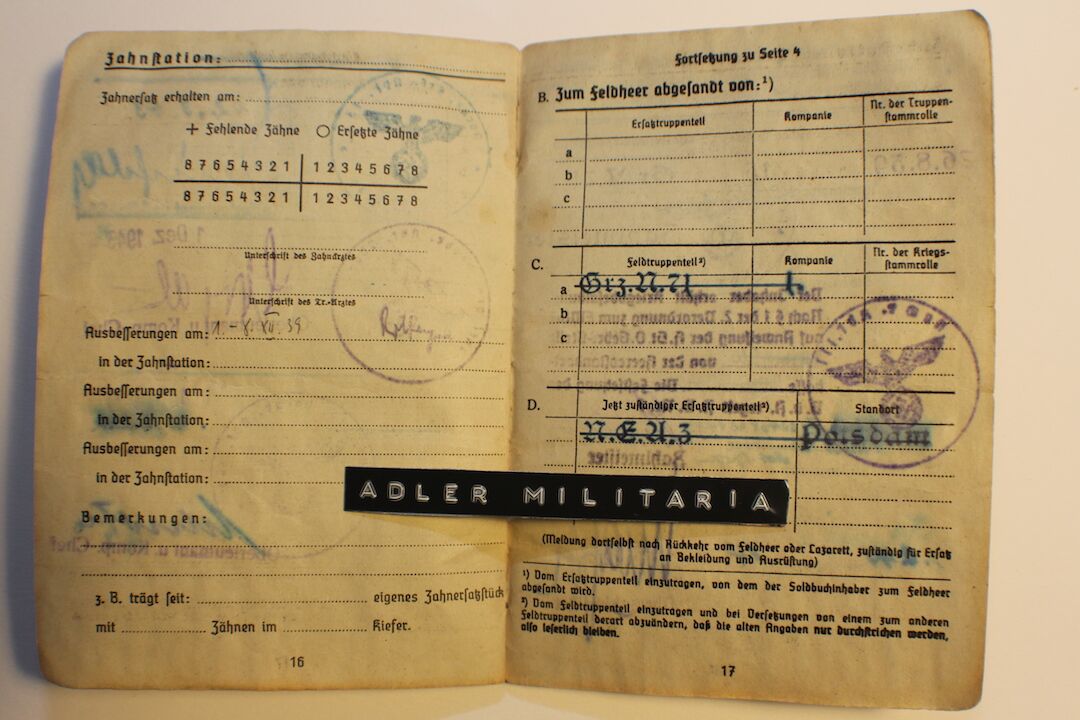 Zahnstation:
Zahnersatz erhalten am:
+ Fehlende Zähne ○ Ersetzte Zähne
8 7 6 5 4 3 2 1 | 1 2 3 4 5 6 7 8
8 7 6 5 4 3 2 1 | 1 2 3 4 5 6 7 8
Unterschrift des Zahnarztes
Unterschrift des Tr.-Arztes
Ausbesserungen am: 39
in der Zahnstation:
Ausbesserungen am:
in der Zahnstation:
Ausbesserungen am:
in der Zahnstation:
Bemerkungen:
z. B. trägt seit: eigenes Zahnersatzstück
mit Zähnen im Kiefer.
16
Fortsetzung zu Seite 4
B. Zum Feldheer abgesandt von:¹)
Ersatztruppenteil Kompanie Nr. der Truppen-
stammrolle
a
b
c
C. Feldtruppenteil²) Kompanie Nr. der Kriegs-
stammrolle
a 1.
b
c
D. Jetzt zuständiger Ersatztruppenteil²) Standort
N.E.A.3 Potsdam
ADLER MILITARIA
(Meldung dortselbst nach Rückkehr vom Feldheer oder Lazarett, zuständig für Ersatz
an Bekleidung und Ausrüstung)
¹) Vom Ersatztruppenteil einzutragen, von dem der Soldbuchinhaber zum Feldheer
abgesandt wird.
²) Vom Feldtruppenteil einzutragen und bei Versetzungen von einem zum anderen
Feldtruppenteil derart abzuändern, daß die alten Angaben nur durchstrichen werden,
also leserlich bleiben.
17